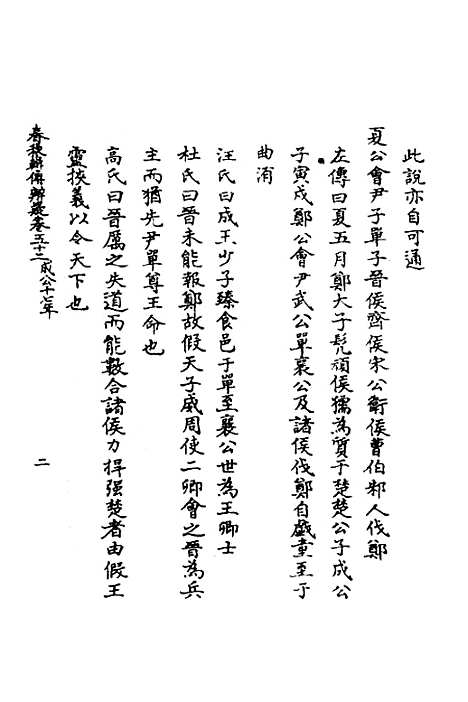 此說亦自可通
夏公會尹子單子晉侯齊侯宋公衛侯曹伯邾人伐鄭
左傳曰夏五月鄭大子髡頑侯獳為質于楚楚公子成公
子寅戍鄭公會尹武公單襄公及諸侯伐鄭自戲童至于
曲洧
汪氏曰成王少子臻食邑于單至襄公世為王卿士
杜氏曰晉未能報鄭故假天子威周使二卿會之晉為兵
主而猶先尹單尊王命也
高氏曰晉厲之失道而能數合諸侯力捍强楚者由假王
靈挾義以令天下也
春秋輯傳辨疑卷五十二 成公十七年 二